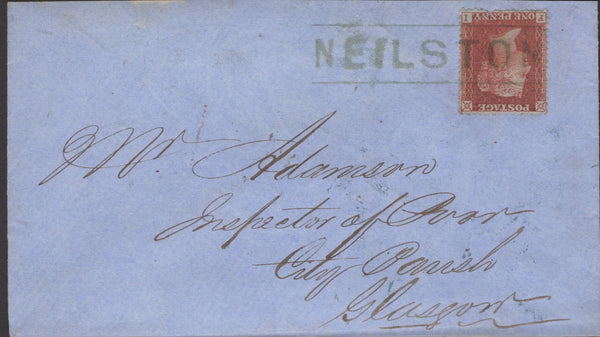 NEILSTON
POSTAGE
ONE PENNY
F I
Mr Adamson
Inspector of Poor
City Parish
Glasgow